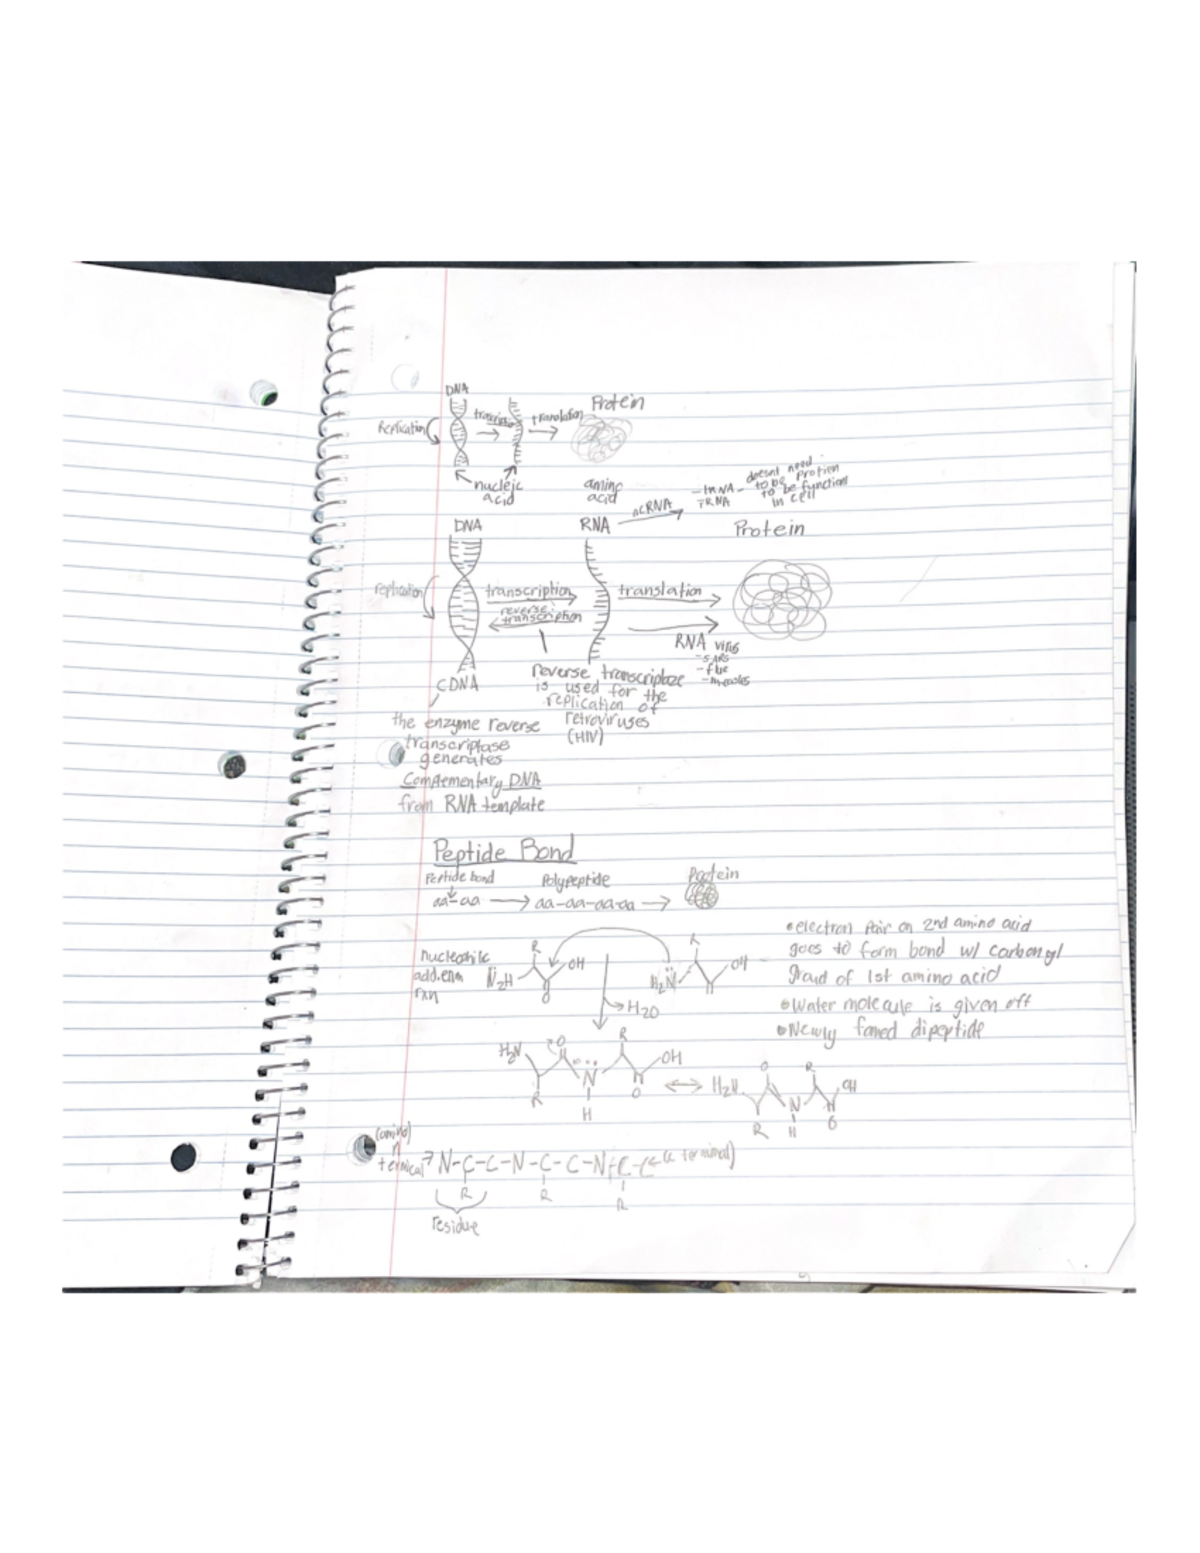 DNA
Protein
Replication
translation
nucleic
acid
amino
acid
ncRNA
-tRNA-
rRNA
doesnt need
to be protien
to be function
in cell
DNA
RNA
Protein
replication
transcription
translation
reverse
transcription
RNA virus
-SARS
-flue
-measles
CDNA
reverse transcriptaze
is used for the
replication of
retroviruses
(HIV)
the enzyme reverse
transcriptase
generates
Complementary DNA
from RNA template
Peptide Bond
Peptide bond
Polypeptide
Protein
aa-aa
aa-aa-aa-aa
nucleophilic
rxn
R
OH
N̈2H
O
H2N̈
OH
H2O
•electron pair on 2nd amino acid
goes to form bond w/ carbonyl
of 1st amino acid
•Water molecule is given off
•Newly fomed dipeptide
H2N
O
R
OH
N
H
R
O
H2N
O
R
OH
N
H
R
O
(amino)
n
N-C-C-N-C-C-N-C-C
(c terminal)
R
R
R
residue